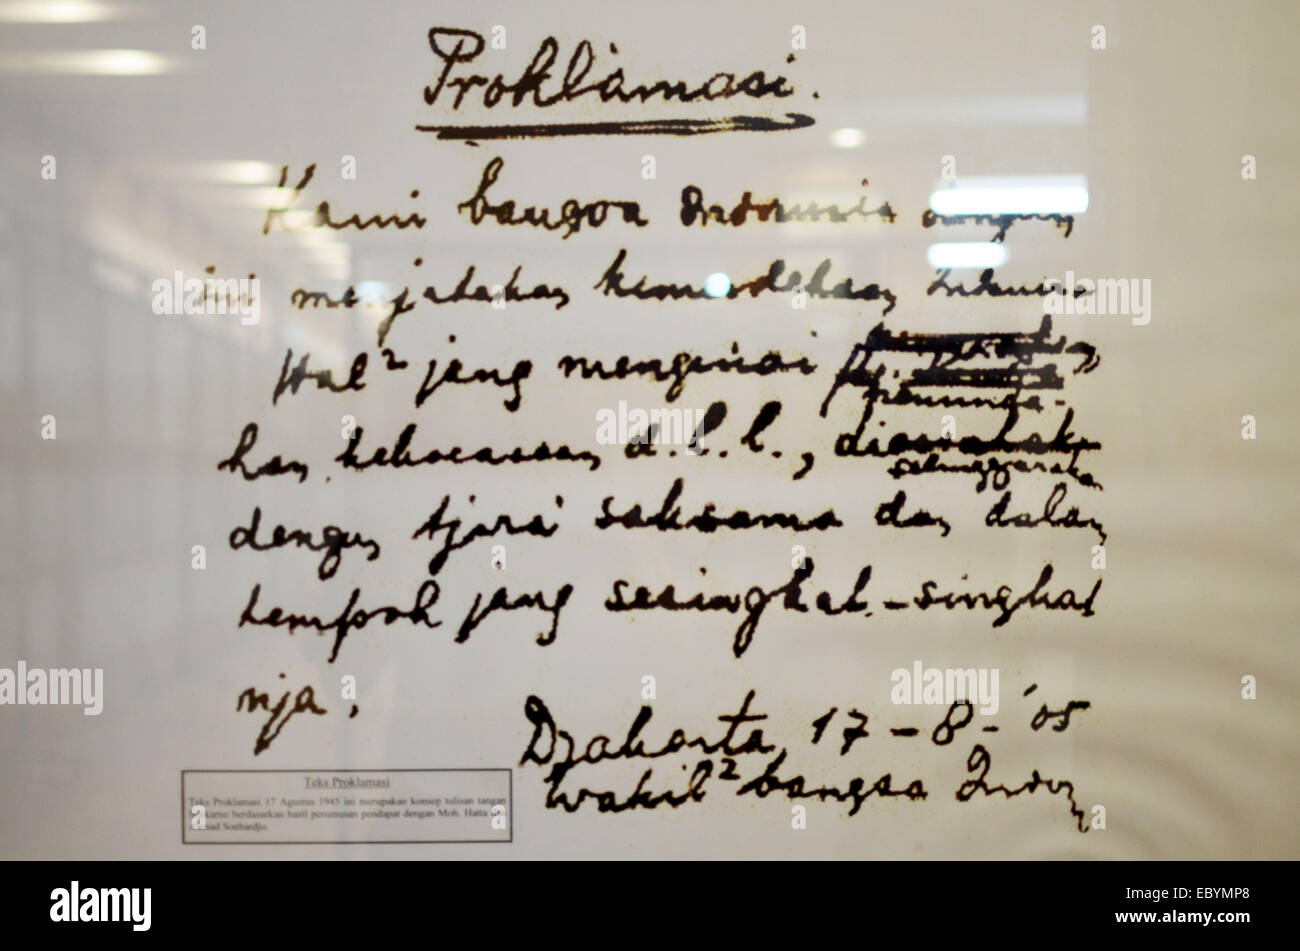 Proklamasi.
Kami bangsa Indonesia dengan
ini menjatakan kemerdekaan Indonesia.
Hal² jang mengenai
peminda-
han kekoeasaan d.l.l., dioesahakan
diselenggarakan
dengan tjara saksama dan dalam
tempoh jang sesingkat-singkat
nja.
Djakarta, 17 - 8 - '05
Wakil² bangsa Indon
Teks Proklamasi
Teks Proklamasi 17 Agustus 1945 ini merupakan konsep tulisan tangan
berdasarkan hasil perumusan pendapat dengan Moh. Hatta dan
Soebardjo.
alamy
alamy
alamy
alamy
alamy
alamy
Image ID: EBYMP8
www.alamy.com